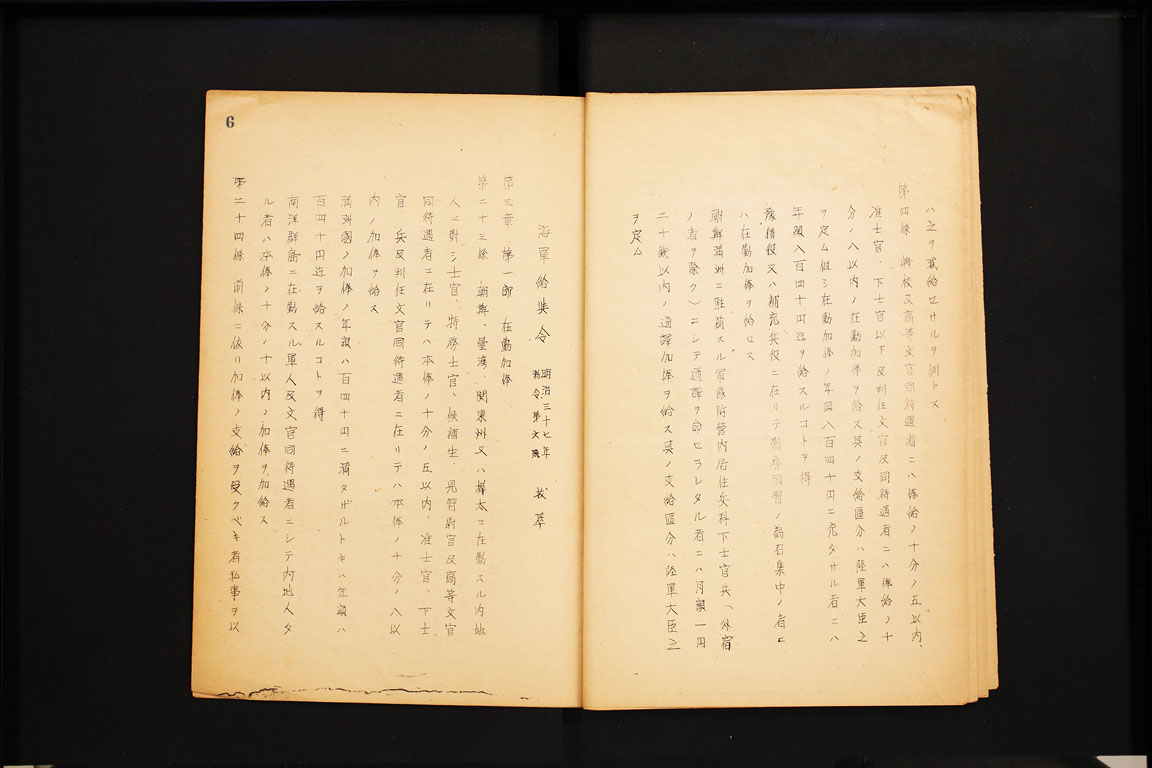 ハ之ヲ我給セサルヲ例トス
第四條 將校及高等文官同待遇者ニハ俸給ノ十分ノ五以内、
准士官、下士官以下及判任文官及同待遇者ニハ俸給ノ十
分ノ八以内ノ在勤加俸ヲ給ス其ノ支給區分ハ陸軍大臣之
ヲ定ム但シ在勤加俸ノ年額八百四十円ニ充タサル者ニハ
年額八百四十円迄ヲ給スルコトヲ得
豫備役又ハ補充兵役ニ在リテ勤務演習ノ爲召集中ノ者ニ
ハ在勤加俸ヲ給セス
朝鮮滿洲ニ駐箚スル軍隊附營内居住兵科下士官兵（外宿
ノ者ヲ除ク）ニシテ通譯ヲ命セラレタル者ニハ月額一円
二十錢以内ノ通譯加俸ヲ給ス其ノ支給區分ハ陸軍大臣之
ヲ定ム
海軍給與令 明治三十七年 勅令第 號 拔萃
第三章 第一節 在勤加俸
第二十三條 朝鮮、臺灣、関東州又ハ樺太ニ在勤スル内地
人ニ對シ士官、特務士官、候補生、見習尉官及高等文官
同待遇者ニ在リテハ本俸ノ十分ノ五以内、准士官、下士
官、兵及判任文官同待遇者ニ在リテハ本俸ノ十分ノ八以
内ノ加俸ヲ給ス
滿洲國ノ加俸ノ年額八百四十円ニ滿タザルトキハ年額八
百四十円迄ヲ給スルコトヲ得
南洋群島ニ在勤スル軍人及文官同待遇者ニシテ内地人タ
ル者ハ本俸ノ十分ノ十以内ノ加俸ヲ加給ス
第二十四條 前條ニ依リ加俸ノ支給ヲ受クベキ者私事ヲ以
6